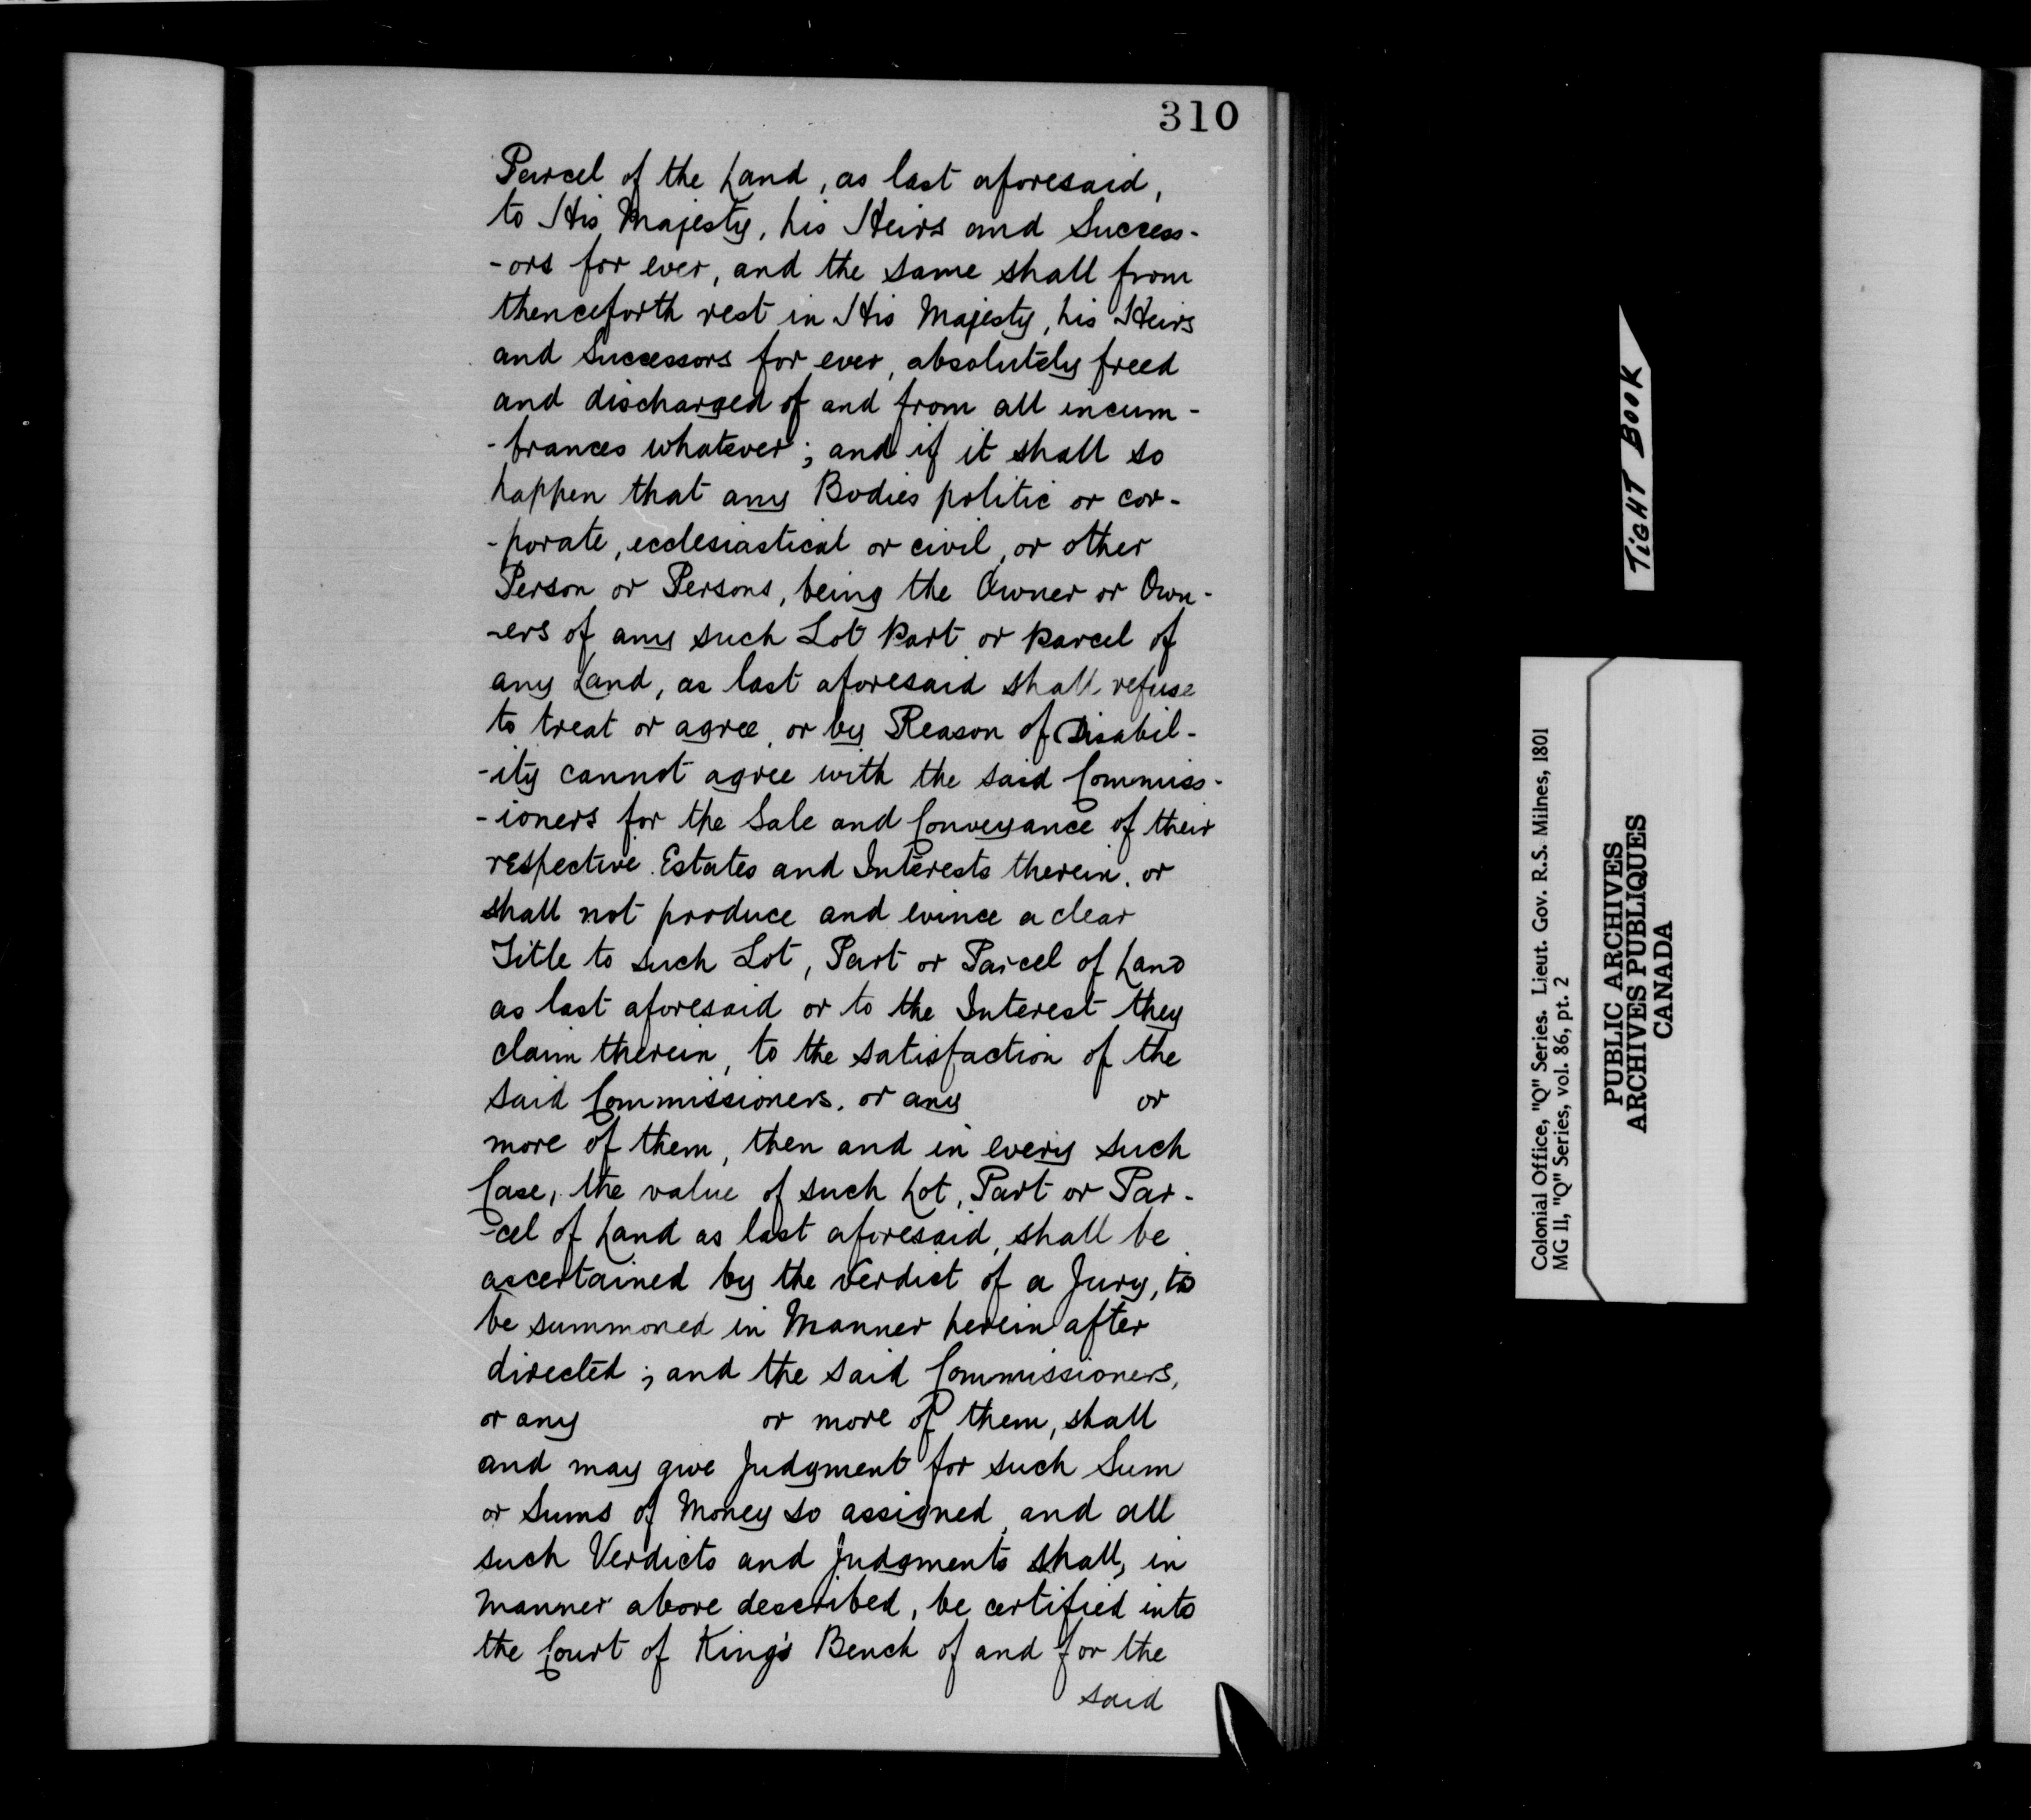 310
Parcel of the Land, as last aforesaid,
to His Majesty, his Heirs and Success-
-ors for ever, and the same shall from
thenceforth rest in His Majesty, his Heirs
and Successors for ever, absolutely freed
and discharged of and from all incum-
-brances whatever; and if it shall so
happen that any Bodies politic or cor-
-porate, ecclesiastical or civil, or other
Person or Persons, being the Owner or Own-
-ers of any such Lot Part or Parcel of
any Land, as last aforesaid shall refuse
to treat or agree, or by Reason of Disabil-
-ity cannot agree with the said Commiss-
-ioners for the Sale and Conveyance of their
respective Estates and Interests therein, or
shall not produce and evince a clear
Title to such Lot, Part or Parcel of Land
as last aforesaid or to the Interest they
claim therein, to the satisfaction of the
said Commissioners, or any or
more of them, then and in every such
Case, the value of such Lot, Part or Par-
-cel of Land as last aforesaid, shall be
ascertained by the Verdict of a Jury, to
be summoned in Manner herein after
directed; and the said Commissioners,
or any or more of them, shall
and may give Judgment for such Sum
or Sums of Money so assigned, and all
such Verdicts and Judgments shall, in
Manner above described, be certified into
the Court of King's Bench of and for the
said
TIGHT BOOK
Colonial Office, "Q" Series. Lieut. Gov. R.S. Milnes, 1801
MG 11, "Q" Series, vol. 86, pt. 2
PUBLIC ARCHIVES
ARCHIVES PUBLIQUES
CANADA